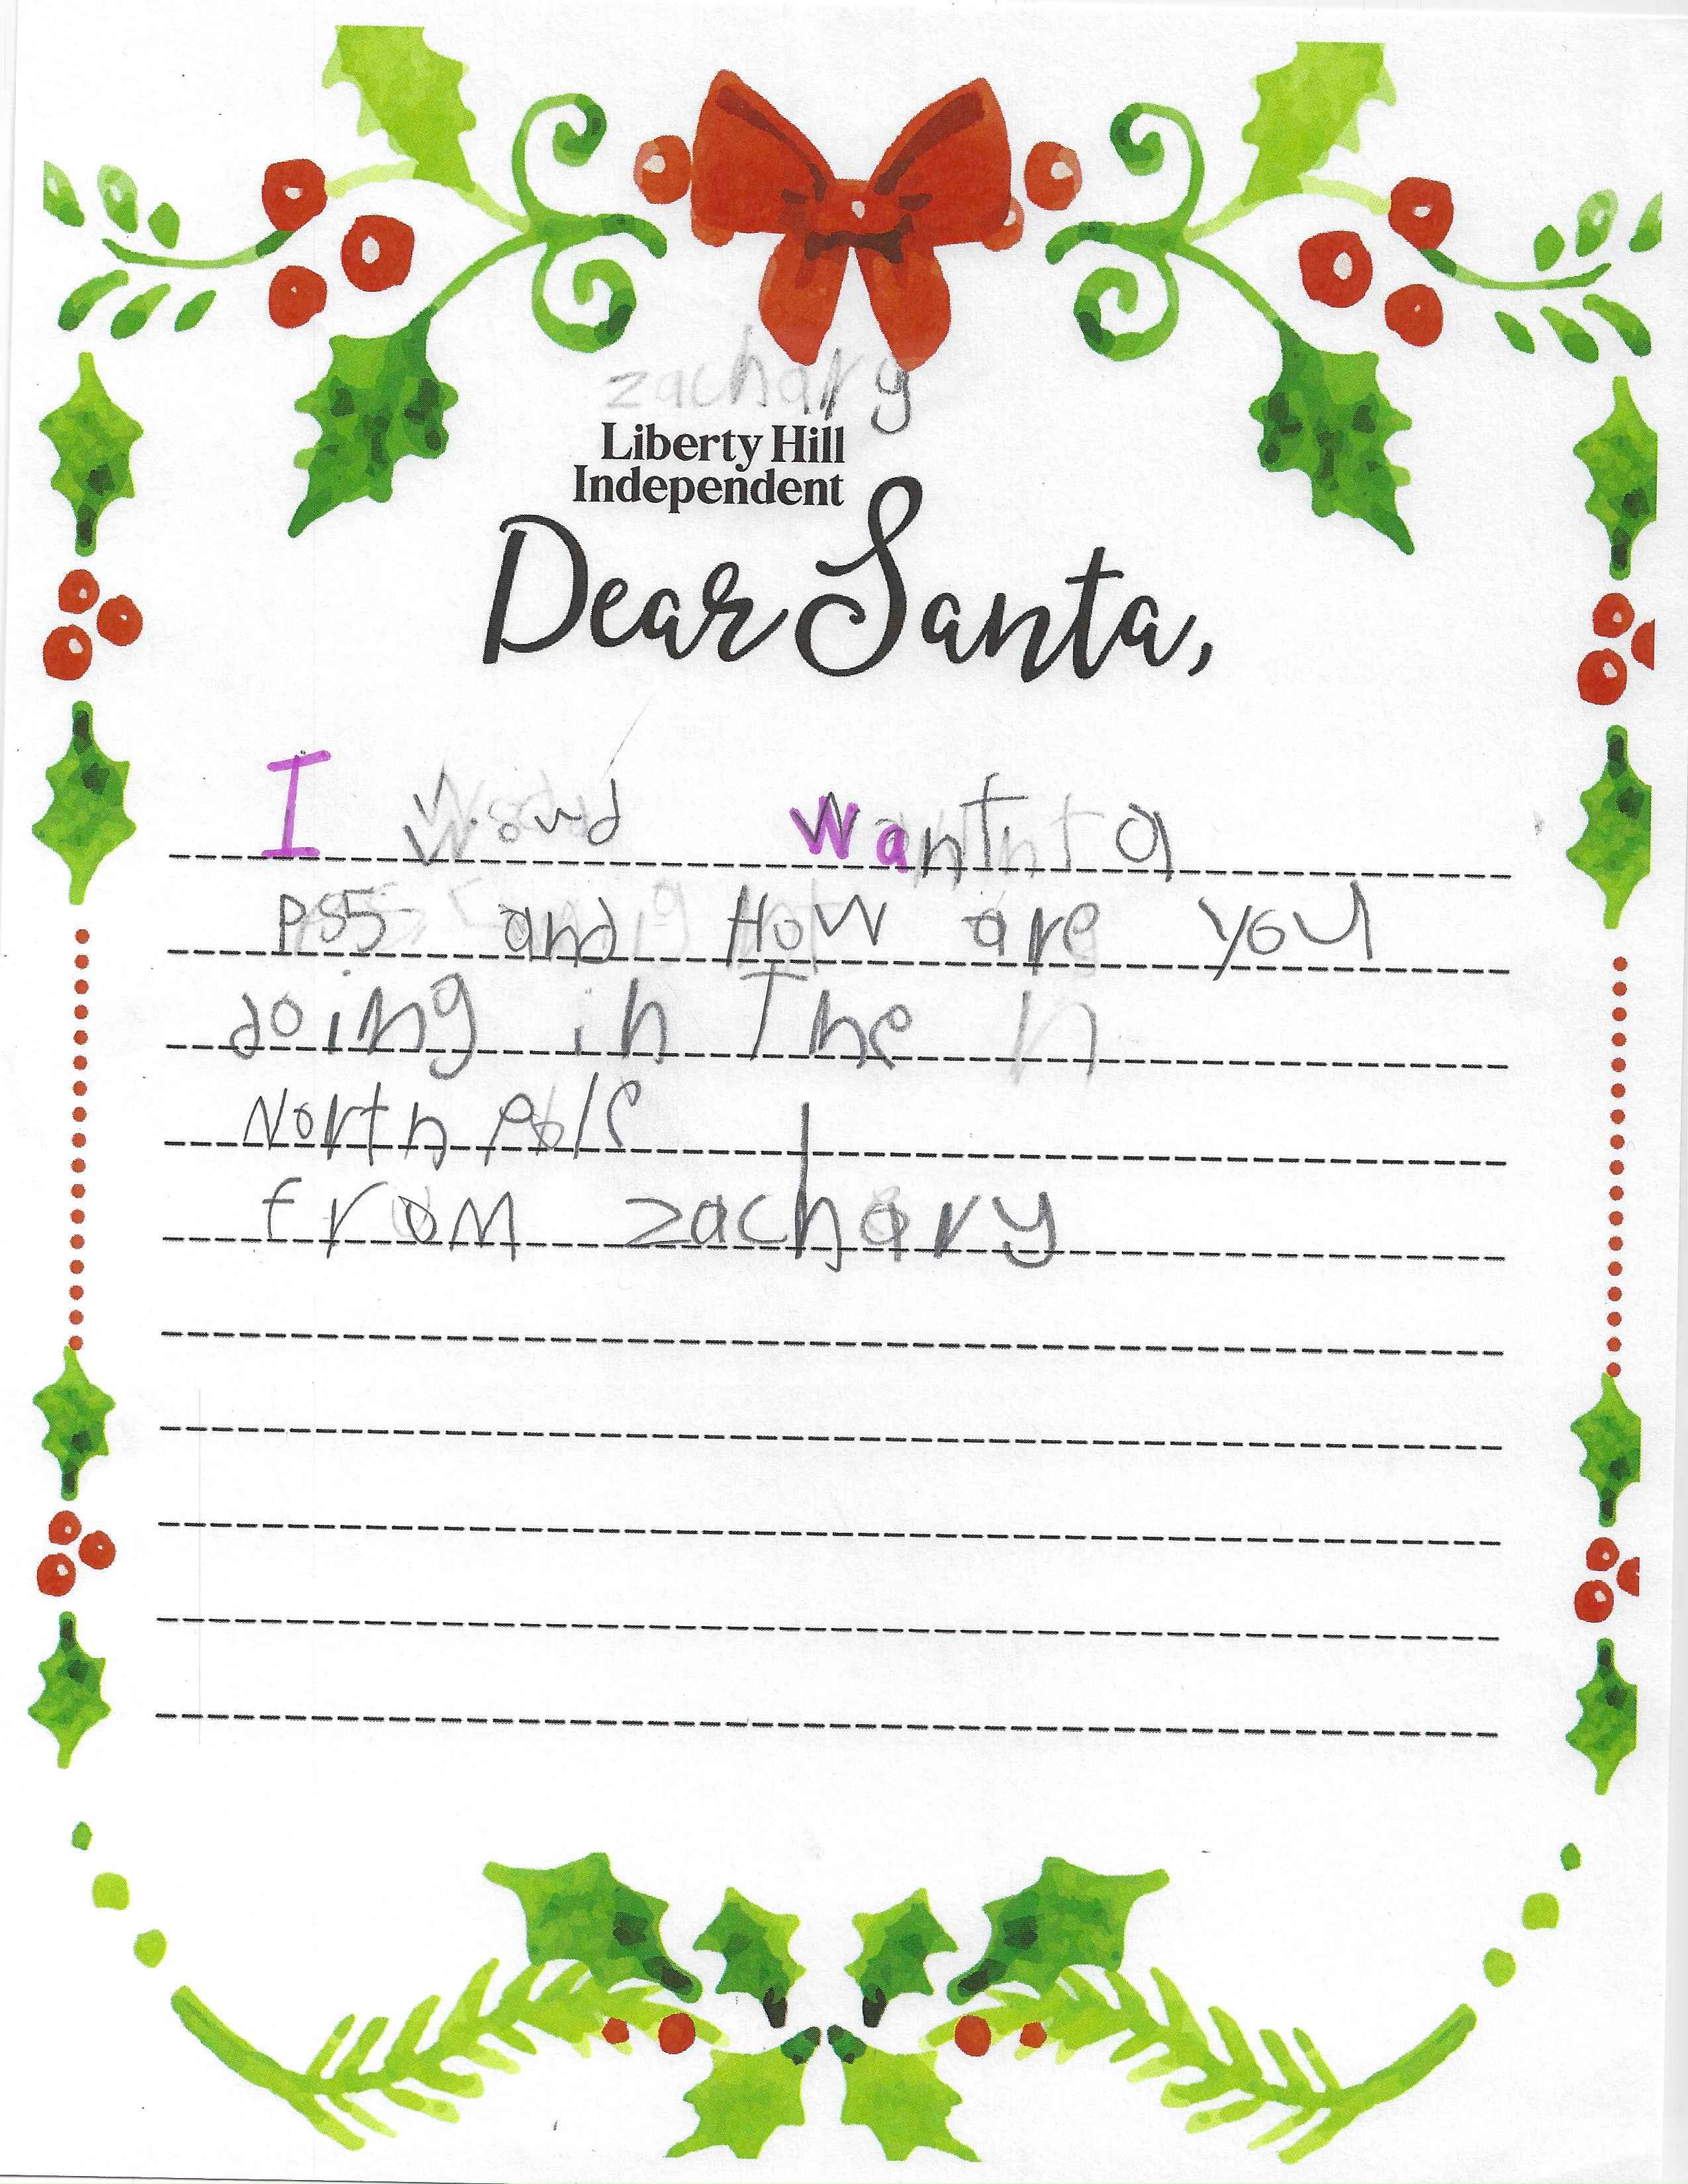 zachary
Liberty Hill
Independent
Dear Santa,
I woud want a
PS5 and How are you
doing in The
North pole
from zachary